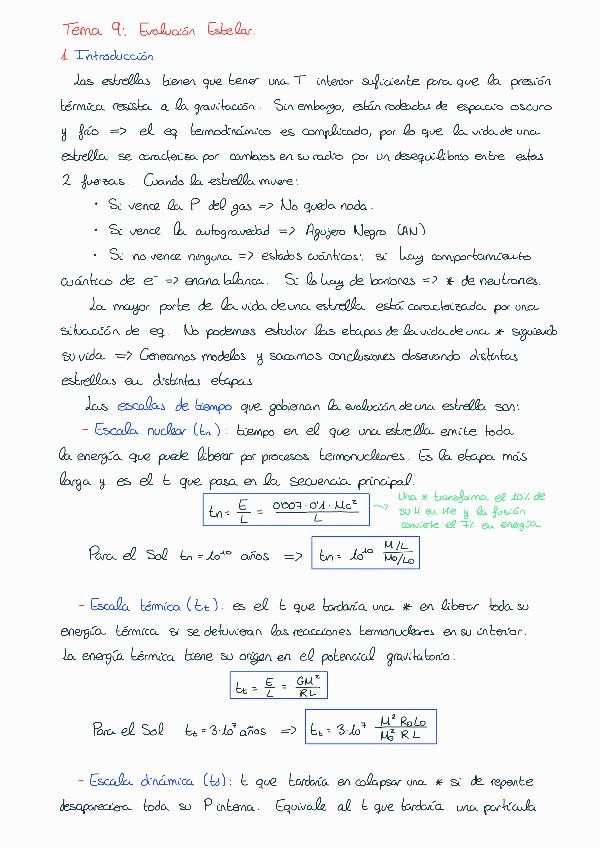 Tema 9: Evolución Estelar.
1. Introducción
Las estrellas tienen que tener una T interior suficiente para que la presión
térmica resista a la gravitación. Sin embargo, están rodeadas de espacio oscuro
y frío => el eq termodinámico es complicado, por lo que la vida de una
estrella se caracteriza por cambios en su radio por un desequilibrio entre estas
2 fuerzas. Cuando la estrella muere:
• Si vence la P del gas => No queda nada.
• Si vence la autogravedad => Agujero Negro (AN)
• Si no vence ninguna => estados cuánticos: si hay comportamiento
cuántico de e⁻ => enana blanca. Si lo hay de bariones => * de neutrones.
La mayor parte de la vida de una estrella está caracterizada por una
situación de eq. No podemos estudiar las etapas de la vida de una * siguiendo
su vida => Generamos modelos y sacamos conclusiones observando distintas
estrellas en distintas etapas
Las escalas de tiempo que gobiernan la evolución de una estrella son:
- Escala nuclear (tn): tiempo en el que una estrella emite toda
la energía que puede liberar por procesos termonucleares. Es la etapa más
larga y es el t que pasa en la secuencia principal.
tn = E/L = 0'007·0'1·Mc²/L
→ Una * transforma el 10% de
su H en He y la fusión
convierte el 7% en energía
Para el Sol tn = 10¹⁰ años => tn = 10¹⁰ M/L / M⊙/L⊙
- Escala térmica (tt): es el t que tardaría una * en liberar toda su
energía térmica si se detuvieran las reacciones termonucleares en su interior.
La energía térmica tiene su origen en el potencial gravitatorio:
tt = E/L = GM²/RL
Para el Sol tt = 3·10⁷ años => tt = 3·10⁷ M² R⊙L⊙ / M⊙² R L
- Escala dinámica (td): t que tardaría en colapsar una * si de repente
desapareciera toda su P interna. Equivale al t que tardaría una partícula